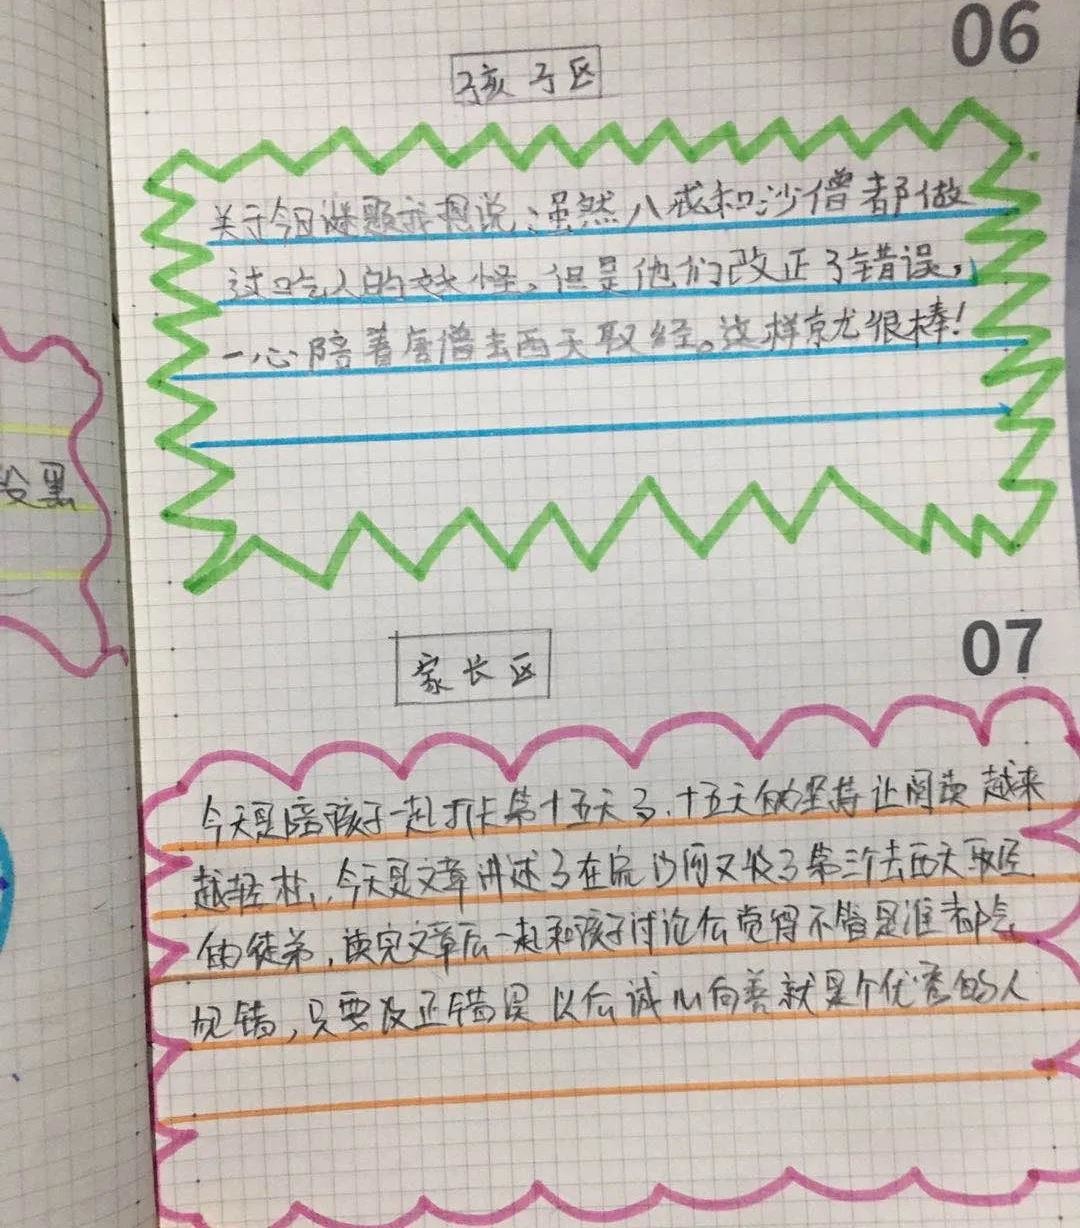 06
孩子区
关于今日谜题我想说:虽然八戒和沙僧都做
过吃人的妖怪。但是他们改正了错误,
一心陪着唐僧去西天取经。这样就很棒!
设黑
07
家长区
今天是陪孩子一起打卡第十五天了,十五天的坚持让阅读越来
越轻松,今天是文章讲述了在流沙河又收了第三个去西天取经
的徒弟,读完文章后一起和孩子讨论后觉得不管是谁都会
犯错,只要改正错误以后诚心向善就是个优秀的人